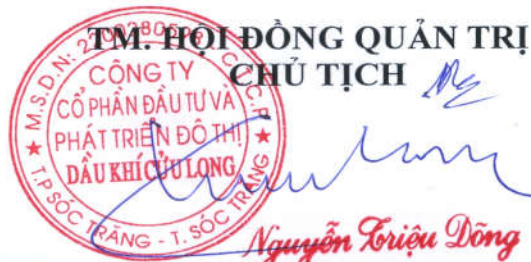 TM. HỘI ĐỒNG QUẢN TRỊ
CHỦ TỊCH
CÔNG TY
CỔ PHẦN ĐẦU TƯ VÀ
PHÁT TRIỂN ĐÔ THỊ
DẦU KHÍ CỬU LONG
M.S.D.N:
C.T.C.P
T.P SÓC TRĂNG - T. SÓC TRĂNG
Nguyễn Triệu Dõng